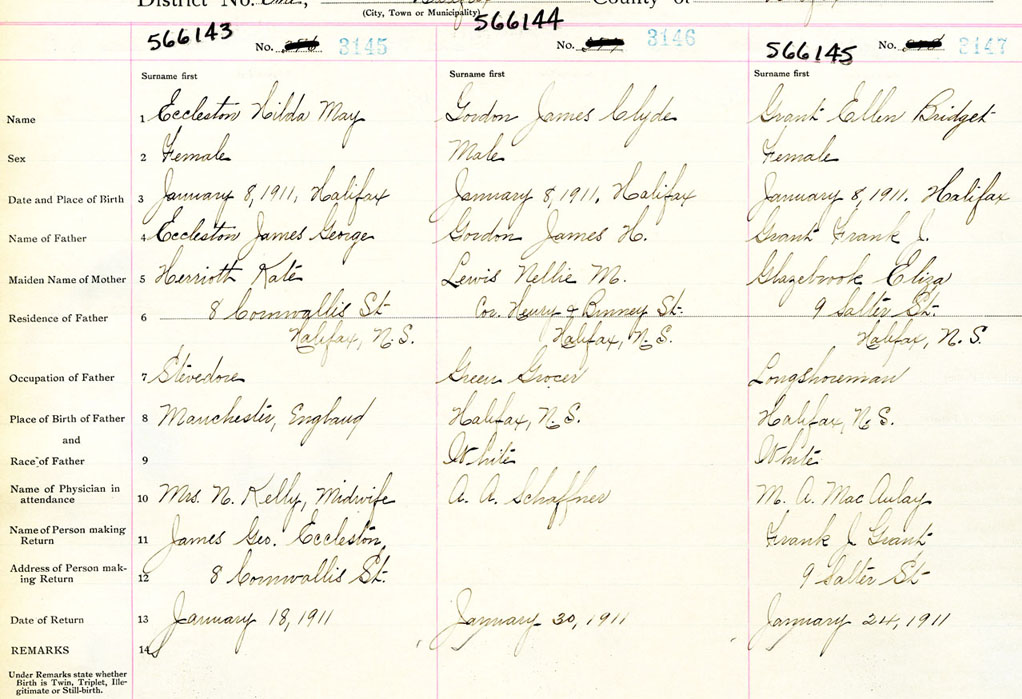 District No. One, Halifax County of Halifax
(City, Town or Municipality)
566143 566144 566145
No. 3145 No. 3146 No. 3147
Surname first Surname first Surname first
Name 1 Eccleston Hilda May Gordon James Clyde Grant Ellen Bridget
Sex 2 Female Male Female
Date and Place of Birth 3 January 8, 1911, Halifax January 8, 1911, Halifax January 8, 1911, Halifax
Name of Father 4 Eccleston James George Gordon James H. Grant Frank J.
Maiden Name of Mother 5 Herrioth Kate Lewis Nellie M. Glazebrook Eliza
Residence of Father 6 8 Cornwallis St Cor. Henry & Binney St. 9 Salter St.
Halifax, N.S. Halifax, N.S. Halifax, N.S.
Occupation of Father 7 Stevedore Green Grocer Longshoreman
Place of Birth of Father 8 Manchester, England Halifax, N.S. Halifax, N.S.
and
Race of Father 9 White White
Name of Physician in
attendance 10 Mrs. N. Kelly, Midwife A. A. Schaffner M. A. MacAulay
Name of Person making
Return 11 James Geo. Eccleston, Frank J. Grant
Address of Person mak-
ing Return 12 8 Cornwallis St. 9 Salter St
Date of Return 13 January 18, 1911 January 30, 1911 January 24, 1911
REMARKS 14
Under Remarks state whether
Birth is Twin, Triplet, Ille-
gitimate or Still-birth.